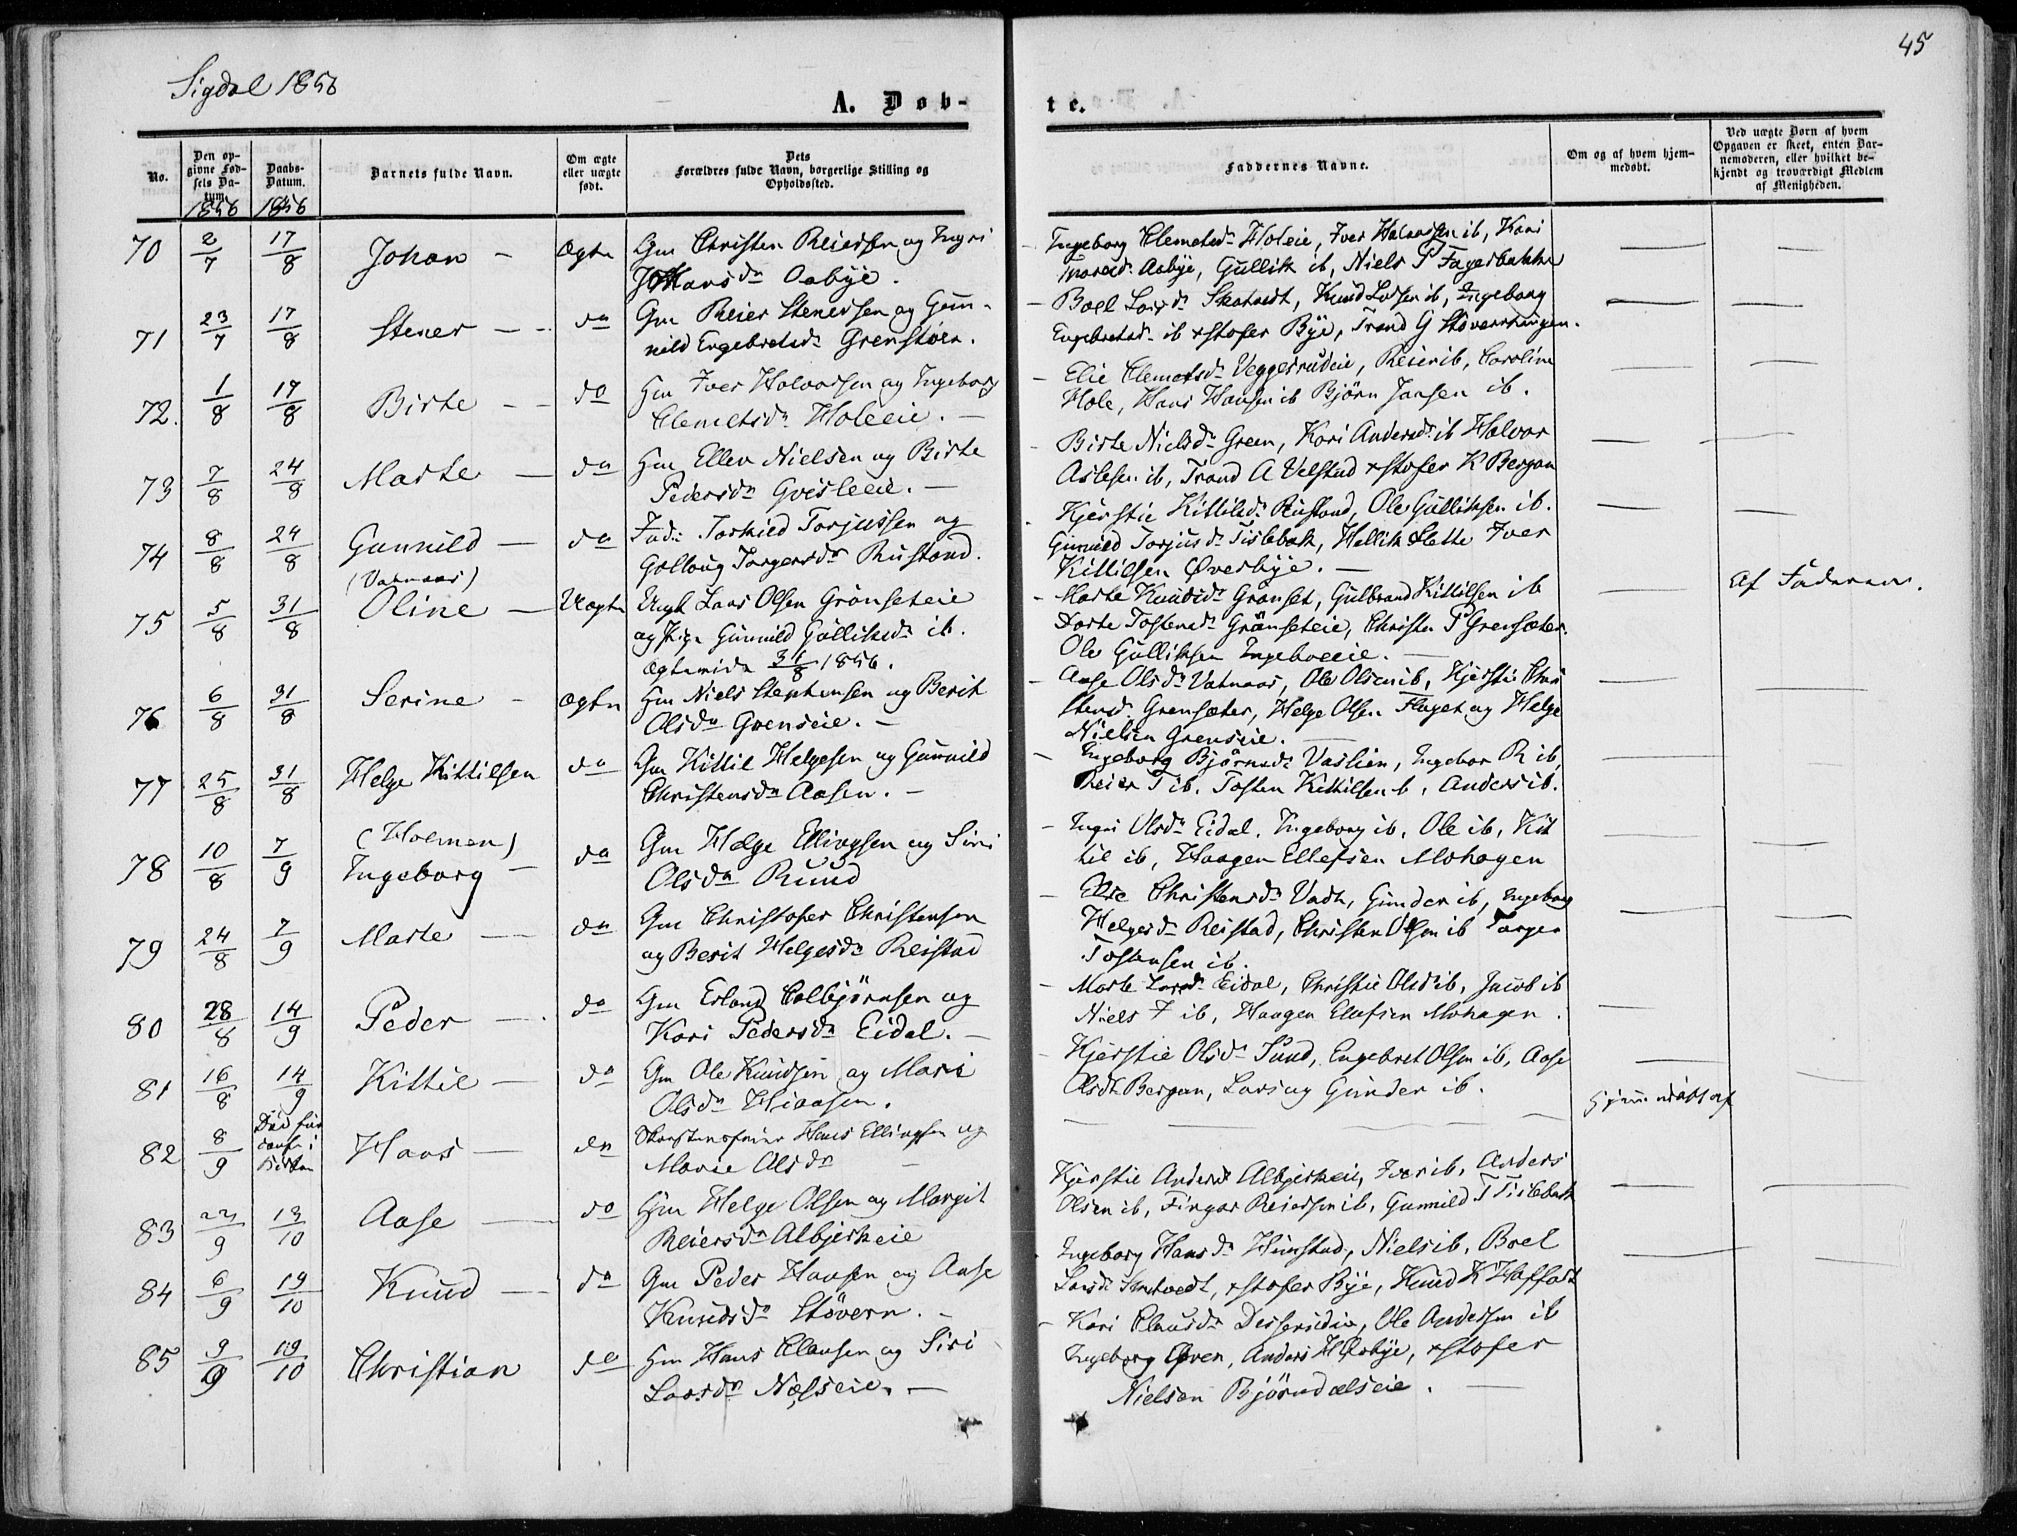 45
Sigdal 1856
A. Døb-
te.
No.
Den opgivne Fødsels Datum.
Daabs-Datum.
Barnets fulde Navn.
Om ægte eller uægte født.
Dets Forældres fulde Navn, borgerlige Stilling og Opholdssted.
Faddernes Navne.
Om og af hvem hjemmedøbt.
Ved uægte Børn af hvem Opgaven er skeet, enten Barnemoderen, eller hvilket bekjendt og troværdigt Medlem af Menigheden.
1856 1856
70 2/7 17/8 Johan - Ægte Gm Christen Reiersen og Ingri
Hansdr Aabye.
Ingeborg Clemetsdr Holeie, Iver Halvorsen ib, Kari
Aabye, Gullik ib, Niels P Fagerbakke
71 23/7 17/8 Stener - do Gm Reier Stenersen og Gun-
nild Engebretsdr Grenskoen.
Boel Larsdr Skatvedt, Knud Larsen ib, Ingeborg
Engebretsd. ib xstofer Bye, Trond G Støvernhaugen.
72. 1/8 17/8 Birte - do Hm Iver Halvorsen og Ingeborg
Clemetsdr Holeeie. -
Elie Clemetsdr Veggesrudeie, Reier ib, Caroline
Hole, Hans Hansen ib Bjørn Jansen ib.
73 7/8 24/8 Marte - do Hm Ellev Nielsen og Birte
Pedersdr Gvisleeie. -
Birte Nielsdr Green, Kari Andersdr ib Halvor
Aslesen ib, Trond A Velstad xstofer K Bergan
74 8/8 24/8 Gunnild - do Ind: Torkild Torjussen og
Golloug Torgersdr Rustand.
Kjerstie Kittilsdr Rustand, Ole Gulliksen ib.
Gunnild Torjusdr Tislebak, Hellik Slette Iver
Kittilsen Øverbye. -
(Vatnaas)
75 5/8 31/8 Oline - Uægte Ungk Lars Olsen Grønseteie
og Pige Gunnild Gulliksdr ib.
Ægteviede 31/8 1856.
Marte Knudsdr Grønset, Gulbrand Kittilsen ib
Dorte Tostensdr Grønseteie, Christen P Grensæter.
Ole Gulliksen Ingeboeeie. -
Af Faderen.
76 6/8 31/8 Serine - Ægte Hm Niels Stephensen og Berit
Olsdr Grenseie. -
Aase Olsdr Vatnaas, Ole Olsen ib, Kjerstie Chri
stensd. Grensæter, Helge Olsen Flaget og Helge
Nielsen Grenseie. -
77 25/8 31/8 Helge Kittilsen do Gm Kittil Helgesen og Gunnild
Christensdr Aasen. -
Ingeborg Bjørnsdr Vaslien, Ingebor R ib,
Reier T ib. Tosten Kittilsen b, Anders ib.
(Holmen)
78 10/8 7/9 Ingeborg - do Gm Helge Ellingsen og Siri
Olsdr Ruud
Ingri Olsdr Eidal, Ingeborg ib, Ole ib, Kit
til ib, Haagen Ellefsen Mohagen
79 24/8 7/9 Marte - do Gm Christofer Christensen
og Berit Helgesdr Reistad
Else Christensdr Vadh, Gunder ib, Ingeborg
Helgesdr Reistad, Christen Olsen ib Torger
Tostensen ib.
80 28/8 14/9 Peder - do Gm Erland Colbjørnsen og
Kari Pedersdr Eidal. -
Marte Larsdr Eidal, Christie Olsd ib, Jacob ib
Niels I ib, Haagen Ellefsen Mohagen.
81 16/8 14/9 Kittil - do Gm Ole Knudsen og Mari
Olsdr Hiaasen.
Kjerstie Olsdr Sund, Engebret Olsen ib, Aase
Olsdr Bergan, Lars og Gunder ib.
82 8/9 Død før i Kirken Hans - do Hans Ellingsen og
Marie Olsdr
af
83 9 12/10 Aase - do Hm Helge Olsen og Margit
Reiersdr Albjerkeie
Kjerstie Andersd Albjerkeie, Iver ib, Anders
Olsen ib, Fingar Reiersen ib, Gunnild T Tislebak
84 6/9 19/10 Knud - do Gm Peder Hansen og Aase
Knudsdr Støvern. -
Ingeborg Hansdr Hunstad, Niels ib, Boel
Larsdr Skatvedt, xstofer Bye, Knud K Haffast
85 9/9 19/10 Christian do Hm Hans Clausen og Siri
Larsdr Næsseie. -
Kari Clausdr Desserudeie, Ole Andersen ib
Ingeborg Øren, Anders H Øsbye, xstofer
Nielsen Bjørndalseie. -